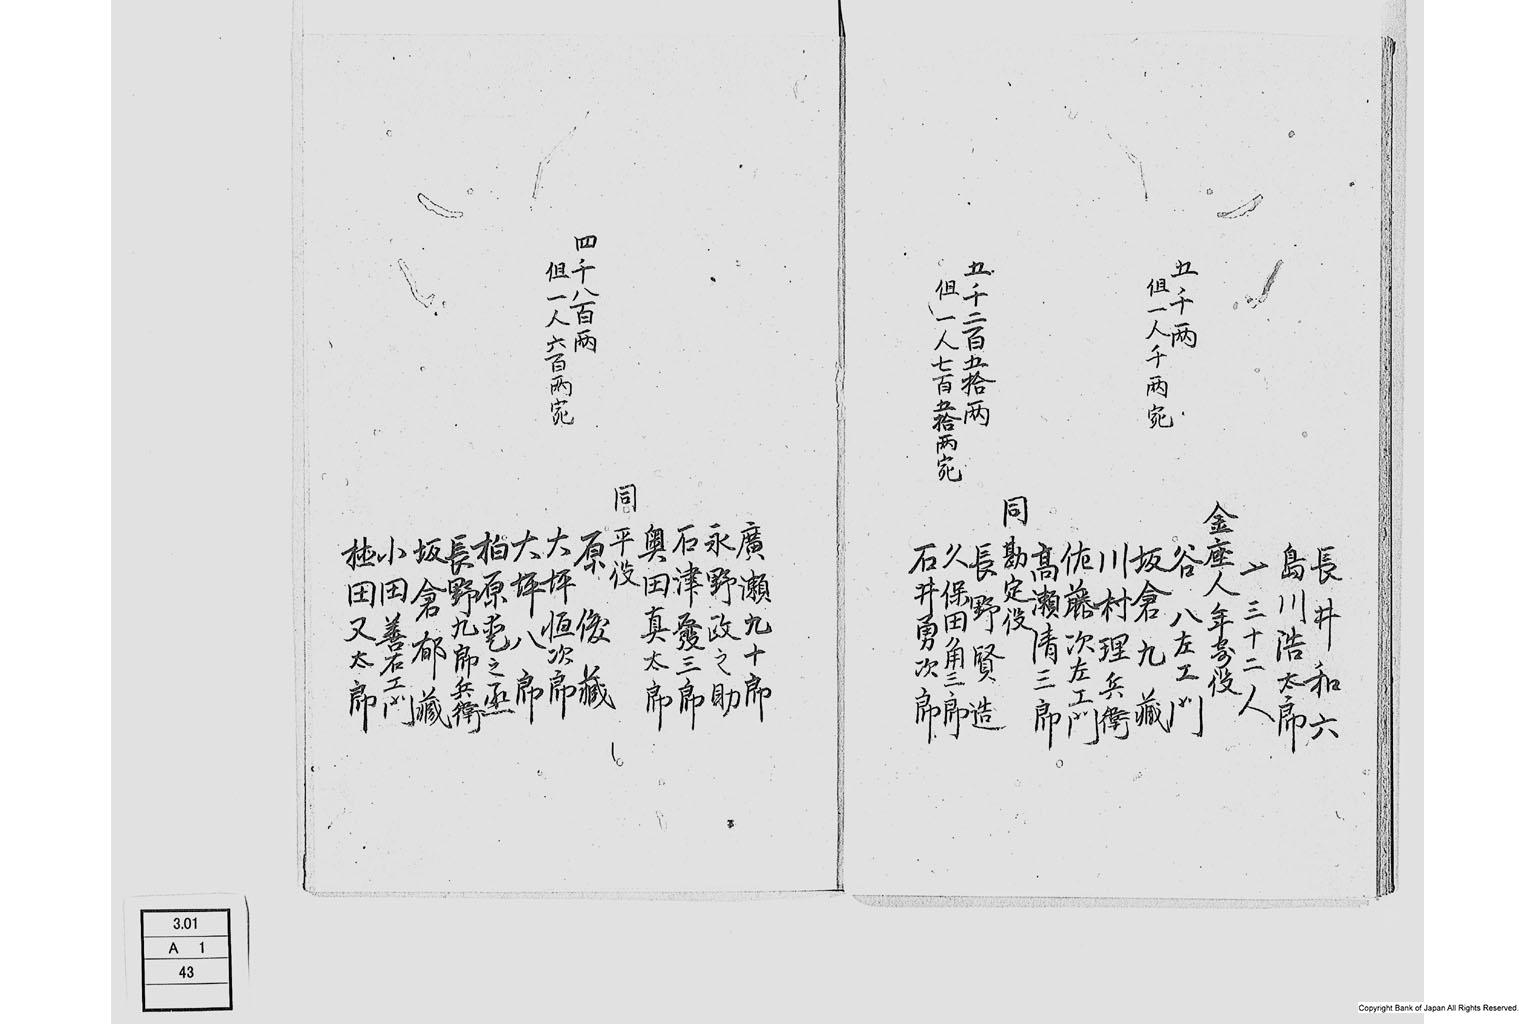 長井和六
島川浩太郎
〆三十二人
金座人年寄役
五千両
但一人千両宛
谷八左エ門
坂倉九藏
川村理兵衛
佐藤次左エ門
髙瀬清三郎
同勘定役
五千二百五拾両
但一人七百五拾両宛
長野賢造
久保田角三郎
石井勇次郎
廣瀬九十郎
永野政之助
石津發三郎
奥田真太郎
同平役
四千八百両
但一人六百両宛
原俊藏
大坪恒次郎
大坪八郎
柏原 之丞
長野九郎兵衛
坂倉郁藏
小田善右エ門
田又太郎
3.01
A 1
43
Copyright Bank of Japan All Rights Reserved.